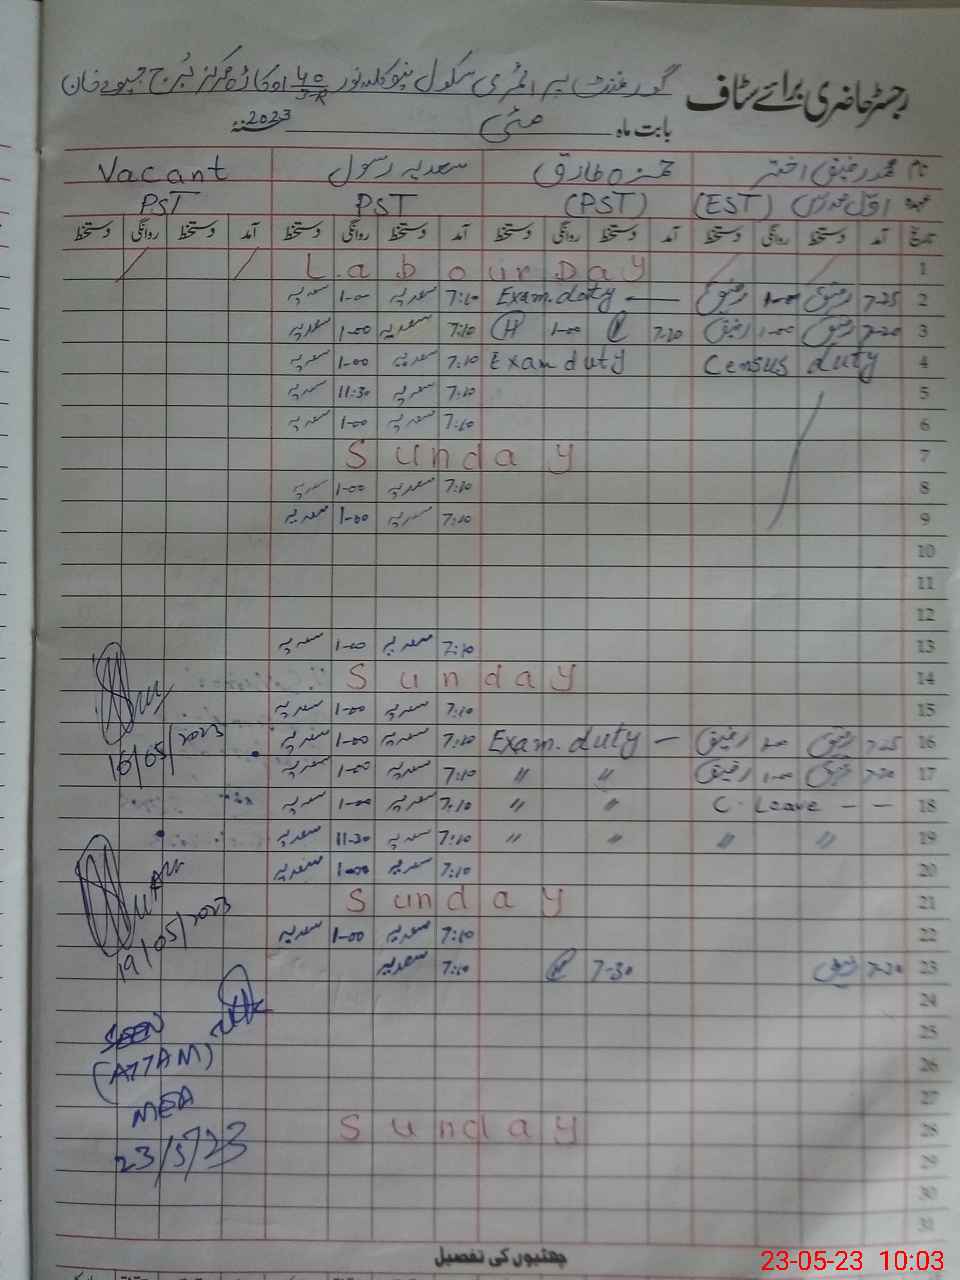 رجسٹر حاضری برائے سٹاف
گورنمنٹ پرائمری سکول نیو کلانور 40/3-R اوکاڑہ مرکز بُرج جیوے خان
بابت ماہ مئی سنہ 2023
نام محمد رفیق اختر حمزہ طارق سعدیہ رسول Vacant
عہدہ اول مدرس (EST) (PST) PST PST
تاریخ آمد دستخط روانگی دستخط آمد دستخط روانگی دستخط آمد دستخط روانگی دستخط آمد دستخط روانگی دستخط
1 Labour Day
2 7-25 رفیق 1-00 رفیق Exam. duty — 7:10 سعدیہ 1-00 سعدیہ
3 7-20 رفیق 1-00 رفیق 7-20 H 1-00 H 7:10 سعدیہ 1-00 سعدیہ
4 Census duty Exam duty 7:10 سعدیہ 1-00 سعدیہ
5 7:10 سعدیہ 11:30 سعدیہ
6 7:10 سعدیہ 1-00 سعدیہ
7 Sunday
8 7:10 سعدیہ 1-00 سعدیہ
9 7:10 سعدیہ 1-00 سعدیہ
10
11
12
13 7:10 سعدیہ 1-00 سعدیہ
14 Sunday
15 7:10 سعدیہ 1-00 سعدیہ
16 7-25 رفیق 1-00 رفیق Exam. duty — 7:10 سعدیہ 1-00 سعدیہ
16/05/2023
17 7-20 رفیق 1-00 رفیق " " 7:10 سعدیہ 1-00 سعدیہ
18 C. Leave — — " " 7:10 سعدیہ 1-00 سعدیہ
19 " " " " 7:10 سعدیہ 11-30 سعدیہ
20 7:10 سعدیہ 1-00 سعدیہ
21 Sunday
22 7:10 سعدیہ 1-00 سعدیہ
19/05/2023
23 7-20 رفیق 7-30 H 7:10 سعدیہ
24
25
SEEN
26
(ATTAM)
27
MEA
28 Sunday
29
23/5/23
30
31
چھٹیوں کی تفصیل
23-05-23 10:03